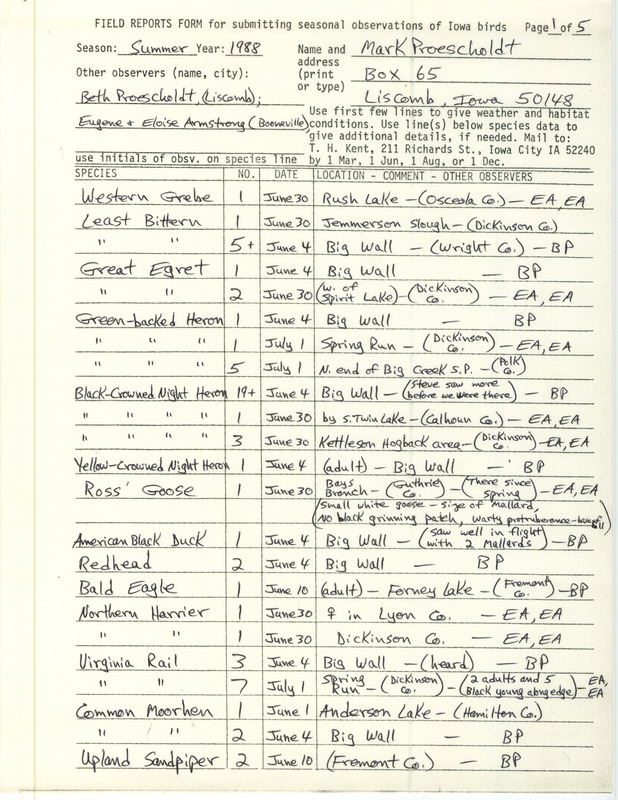 FIELD REPORTS FORM for submitting seasonal observations of Iowa birds Page 1 of 5
Season: Summer Year: 1988 Name and Mark Proescholdt
address
Other observers (name, city): (print Box 65
or type)
Beth Proescholdt (Liscomb); Liscomb, Iowa 50148
Use first few lines to give weather and habitat
Eugene & Eloise Armstrong (Booneville) conditions. Use line(s) below species data to
give additional details, if needed. Mail to:
T. H. Kent, 211 Richards St., Iowa City IA 52240
use initials of obsv. on species line by 1 Mar, 1 Jun, 1 Aug, or 1 Dec.
SPECIES NO. DATE LOCATION - COMMENT - OTHER OBSERVERS
Western Grebe 1 June 30 Rush Lake - (Osceola Co.) - EA, EA
Least Bittern 1 June 30 Jemmerson Slough - (Dickinson Co.)
" " 5+ June 4 Big Wall - (Wright Co.) - BP
Great Egret 1 June 4 Big Wall - BP
" " 2 June 30 (W. of Spirit Lake) - (Dickinson Co.) - EA, EA
Green-backed Heron 1 June 4 Big Wall - BP
" " " 1 July 1 Spring Run - (Dickinson Co.) - EA, EA
" " " 5 July 1 N. end of Big Creek S.P. - (Polk Co.)
Black-Crowned Night Heron 19+ June 4 Big Wall - (Steve saw more before we were there) - BP
" " " " 1 June 30 by S. Twin Lake - (Calhoun Co.) - EA, EA
" " " " 3 June 30 Kettleson Hogback area - (Dickinson Co.) - EA, EA
Yellow-Crowned Night Heron 1 June 4 (adult) - Big Wall - BP
Ross' Goose 1 June 30 Bays Branch - (Guthrie Co.) - (There since spring) - EA, EA
(Small white goose - size of Mallard,
No black grinning patch, warty protruberance - base of bill)
American Black Duck 1 June 4 Big Wall - (saw well in flight with 2 Mallards) - BP
Redhead 2 June 4 Big Wall - BP
Bald Eagle 1 June 10 (adult) - Forney Lake - (Fremont Co.) - BP
Northern Harrier 1 June 30 ♀ in Lyon Co. - EA, EA
" " 1 June 30 Dickinson Co. - EA, EA
Virginia Rail 3 June 4 Big Wall - (heard) - BP
" " 7 July 1 Spring Run - (Dickinson Co.) - (2 adults and 5 Black young along edge) - EA, EA
Common Moorhen 1 June 1 Anderson Lake - (Hamilton Co.)
" " 2 June 4 Big Wall - BP
Upland Sandpiper 2 June 10 (Fremont Co.) - BP